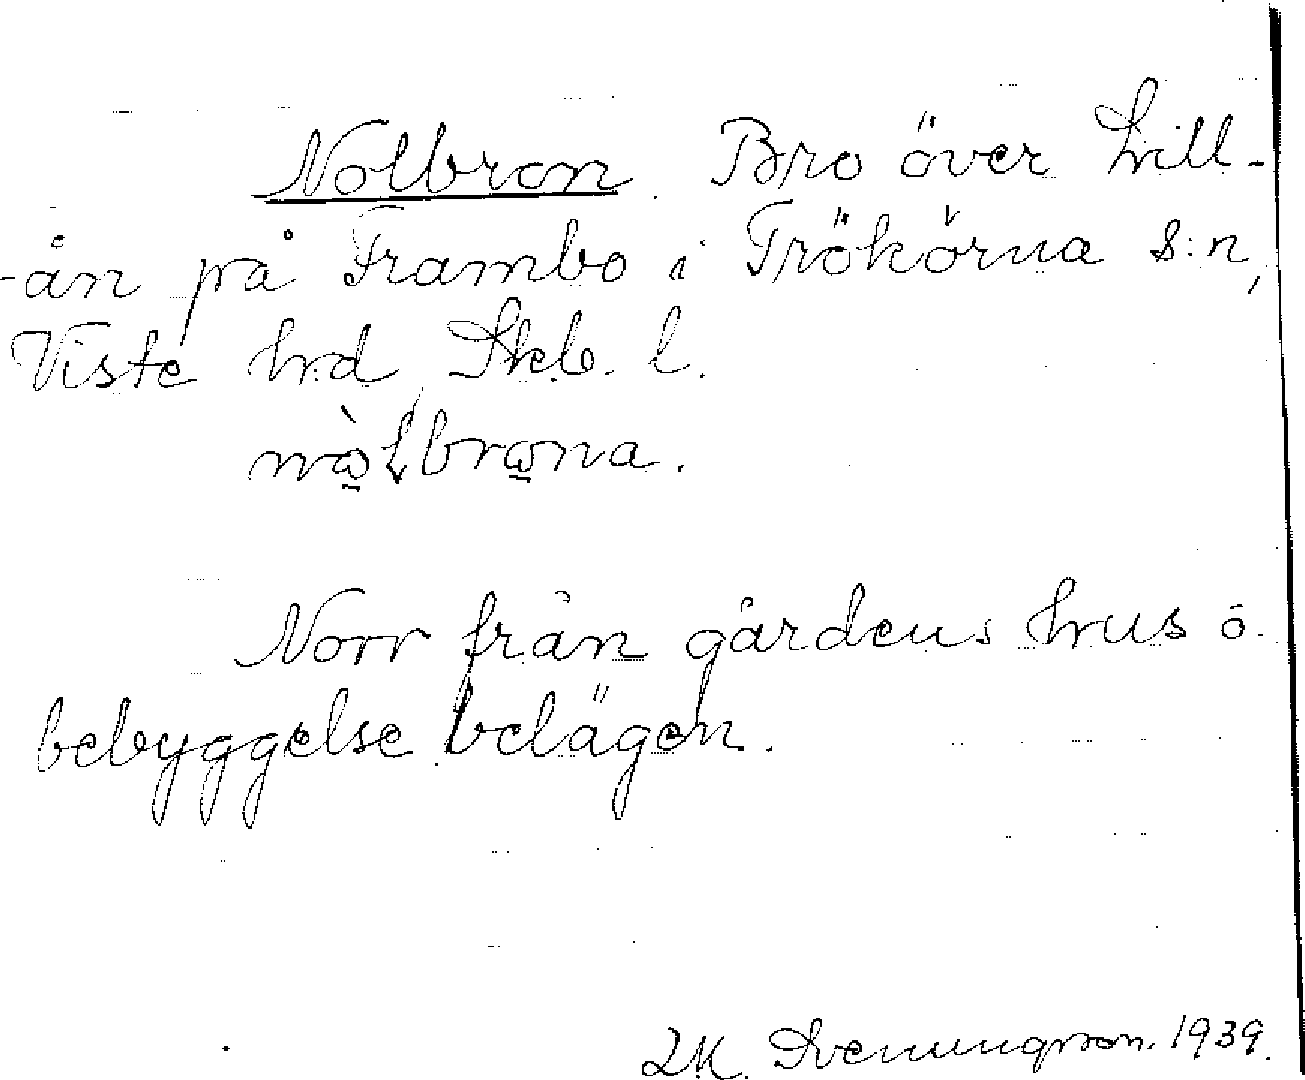 Nolbron. Bro över Lill-
-ån på Frambo i Trökörna s:n,
Viste hrd, Skb. l.
nò̰łbro̰na.
Norr från gårdens hus o.
bebyggelse belägen.
Svenungsson. 1939.